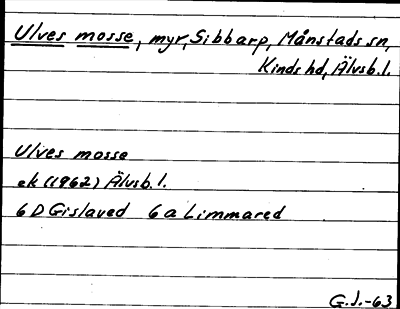 Ulves mosse, myr, Sibbarp, Månstads sn,
Kinds hd, Älvsb. l.
Ulves mosse
ek (1962) Älvsb. l.
6 D Gislaved 6 a Limmared
G.J.-63